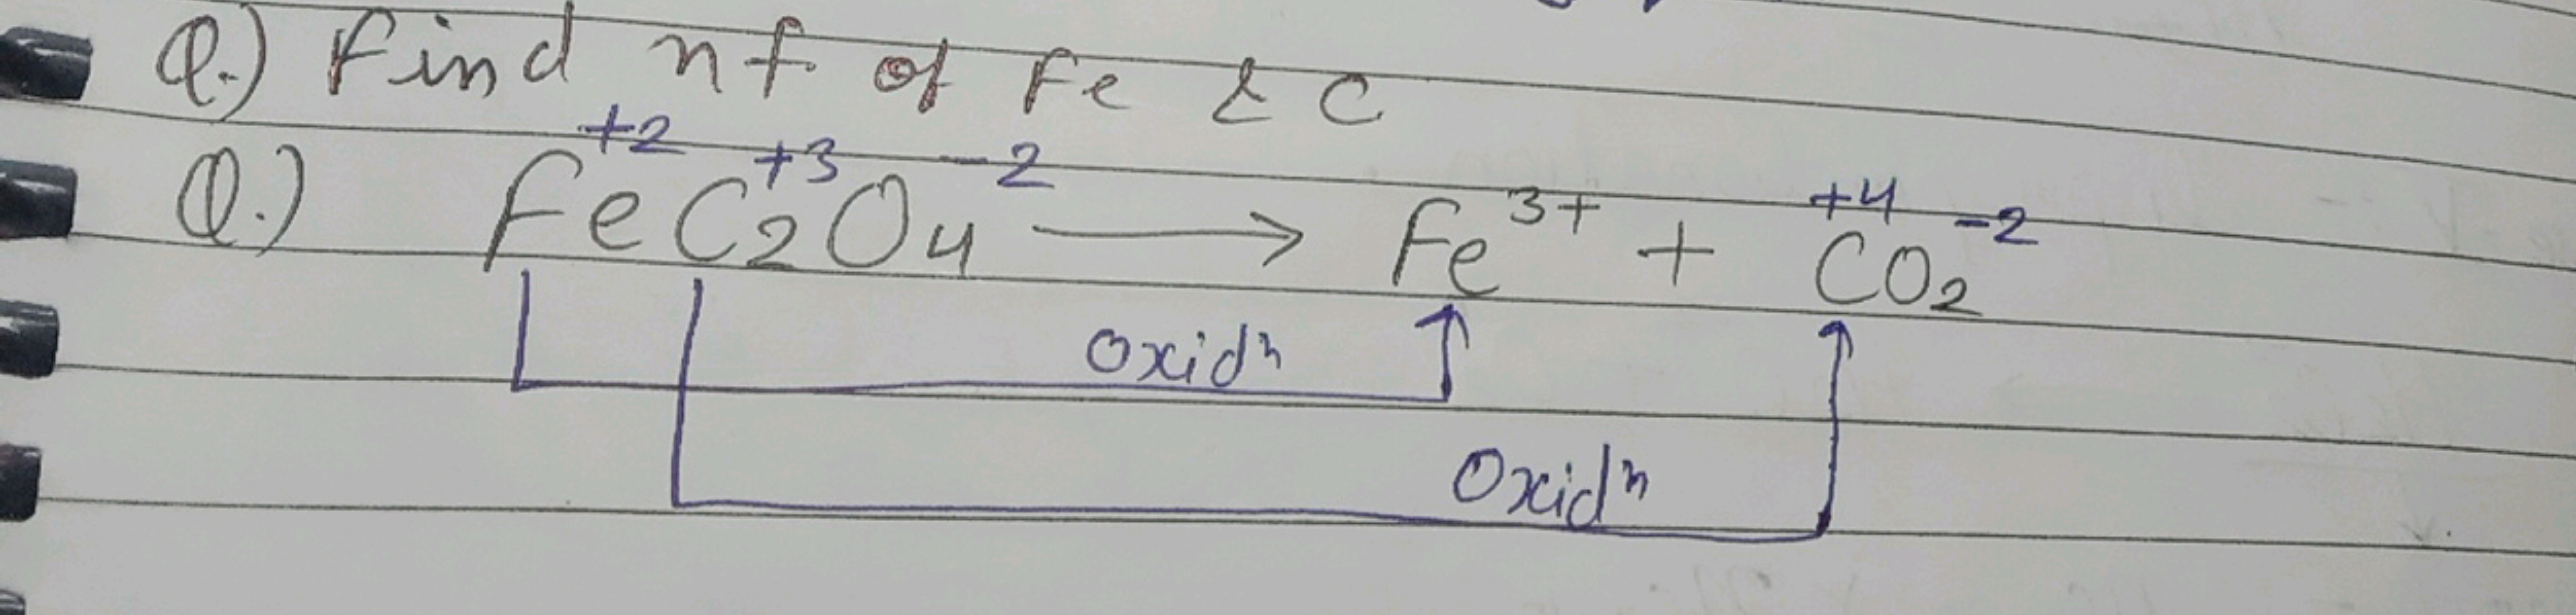 Q.) Find nf of Fe & C
Q.) Fe⁺² C₂⁺³ O₄⁻² ⟶ Fe³⁺ + C⁺⁴O₂⁻²
Oxidⁿ
Oxidⁿ